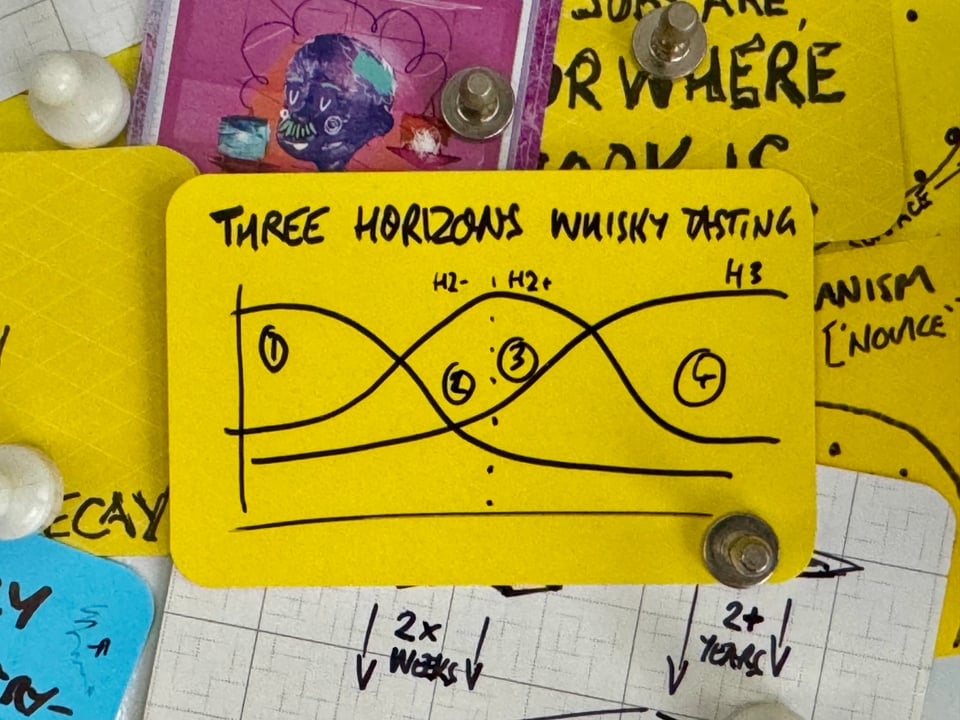 ARE,
OR WHERE
IS
THREE HORIZONS WHISKY TASTING
H2- H2+ H3
1
2
3
4
ANISM
["NOVICE"
ECAY
2x
WEEKS
2+
YEARS